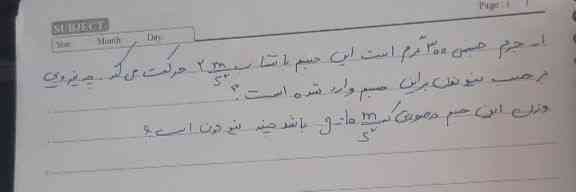 Page: 1
SUBJECT:
Year: Month: Day:
اگر جرم جسمی ۳۰۰ گرم است این جسم با شتاب ۲ m/s² حرکت می کند چه نیرویی
بر حسب نیوتن براین جسم وارد شده است؟
وزن این جسم درصورتی که m/s² g=۱۰ باشد چند نیوتن است؟